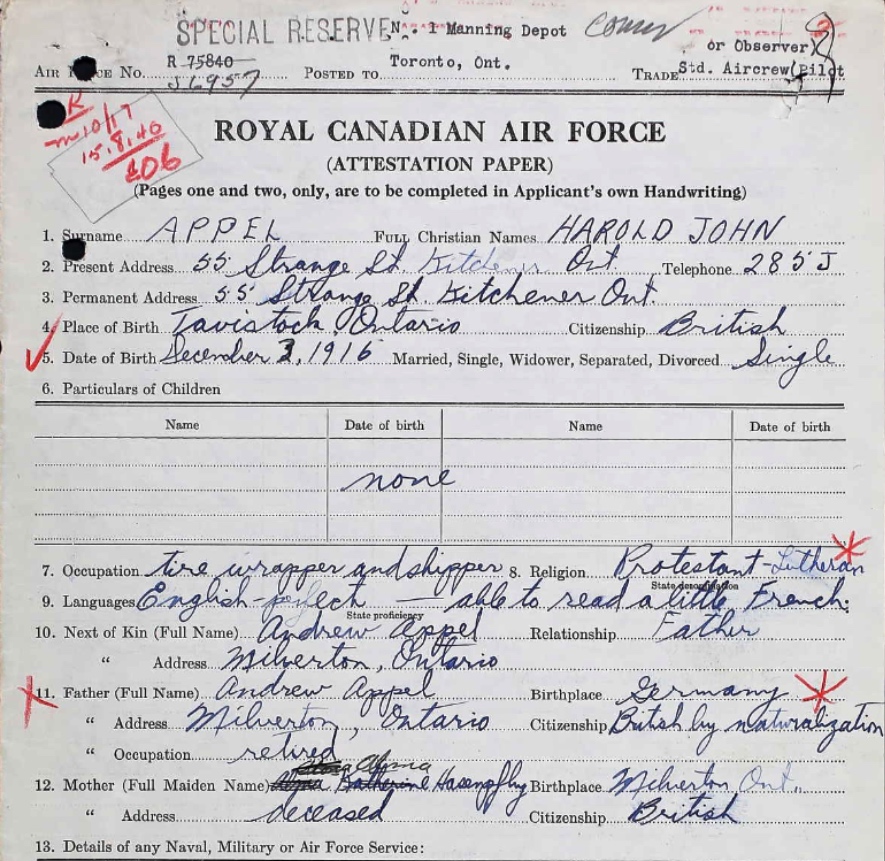 SPECIAL RESERVE No. 1 Manning Depot
or Observer)
AIR FORCE No. R 75840 POSTED TO Toronto, Ont. TRADE Std. Aircrew(Pilot
J6957
R
m 10/17
15.8.40
406
ROYAL CANADIAN AIR FORCE
(ATTESTATION PAPER)
(Pages one and two, only, are to be completed in Applicant's own Handwriting)
1. Surname APPEL FULL Christian Names HAROLD JOHN
2. Present Address 55 Strange St. Kitchener Ont Telephone 285J
3. Permanent Address 55 Strange St. Kitchener Ont.
4. Place of Birth Tavistock, Ontario Citizenship British
5. Date of Birth December 3, 1916 Married, Single, Widower, Separated, Divorced Single
6. Particulars of Children
Name Date of birth Name Date of birth
none
7. Occupation tire wrapper and shipper 8. Religion Protestant-Lutheran
State denomination
9. Languages English-perfect — able to read a little French.
State proficiency
10. Next of Kin (Full Name) Andrew Appel Relationship Father
" Address Milverton, Ontario
11. Father (Full Name) Andrew Appel Birthplace Germany
" Address Milverton, Ontario Citizenship British by naturalization
" Occupation retired
Alma
12. Mother (Full Maiden Name) Katherine Hasenpflug Birthplace Milverton Ont.
" Address deceased Citizenship British
13. Details of any Naval, Military or Air Force Service: